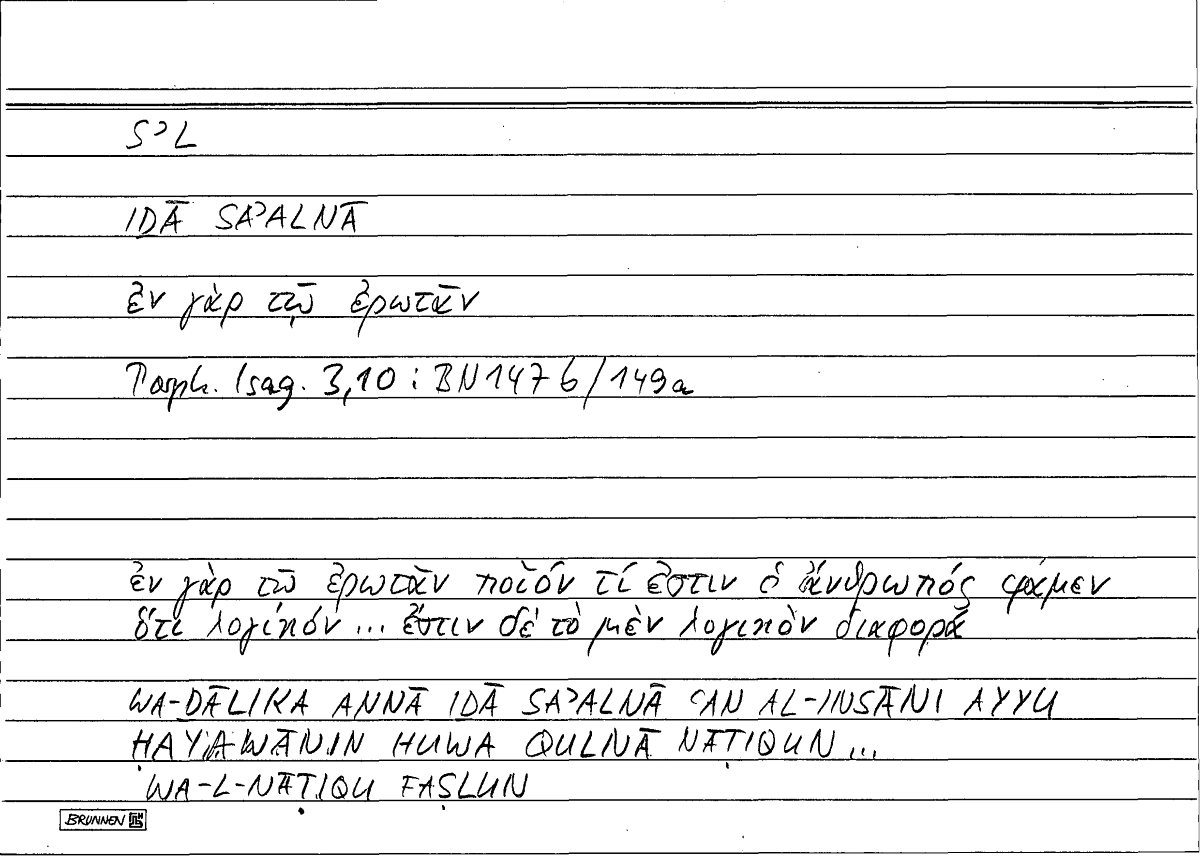 SʾL
IḎĀ SAʾALNĀ
ἐν γὰρ τῷ ἐρωτᾶν
Porph. Isag. 3,10 : BN147b/149a
ἐν γὰρ τῶ ἐρωτᾶν ποῖόν τί ἐστιν ὁ ἄνθρωπός φάμεν
ὅτι λογικόν ... ἔστιν δὲ τὸ μὲν λογικὸν διαφορά
WA-ḎĀLIKA ANNĀ IḎĀ SAʾALNĀ ʿAN AL-INSĀNI AYYU
ḤAYAWĀNIN HUWA QULNĀ NĀṬIQUN ...
WA-L-NĀṬIQU FAṢLUN
BRUNNEN